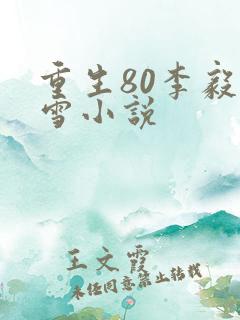 重生80李毅
雪小说
王文霞
未经同意禁止转载